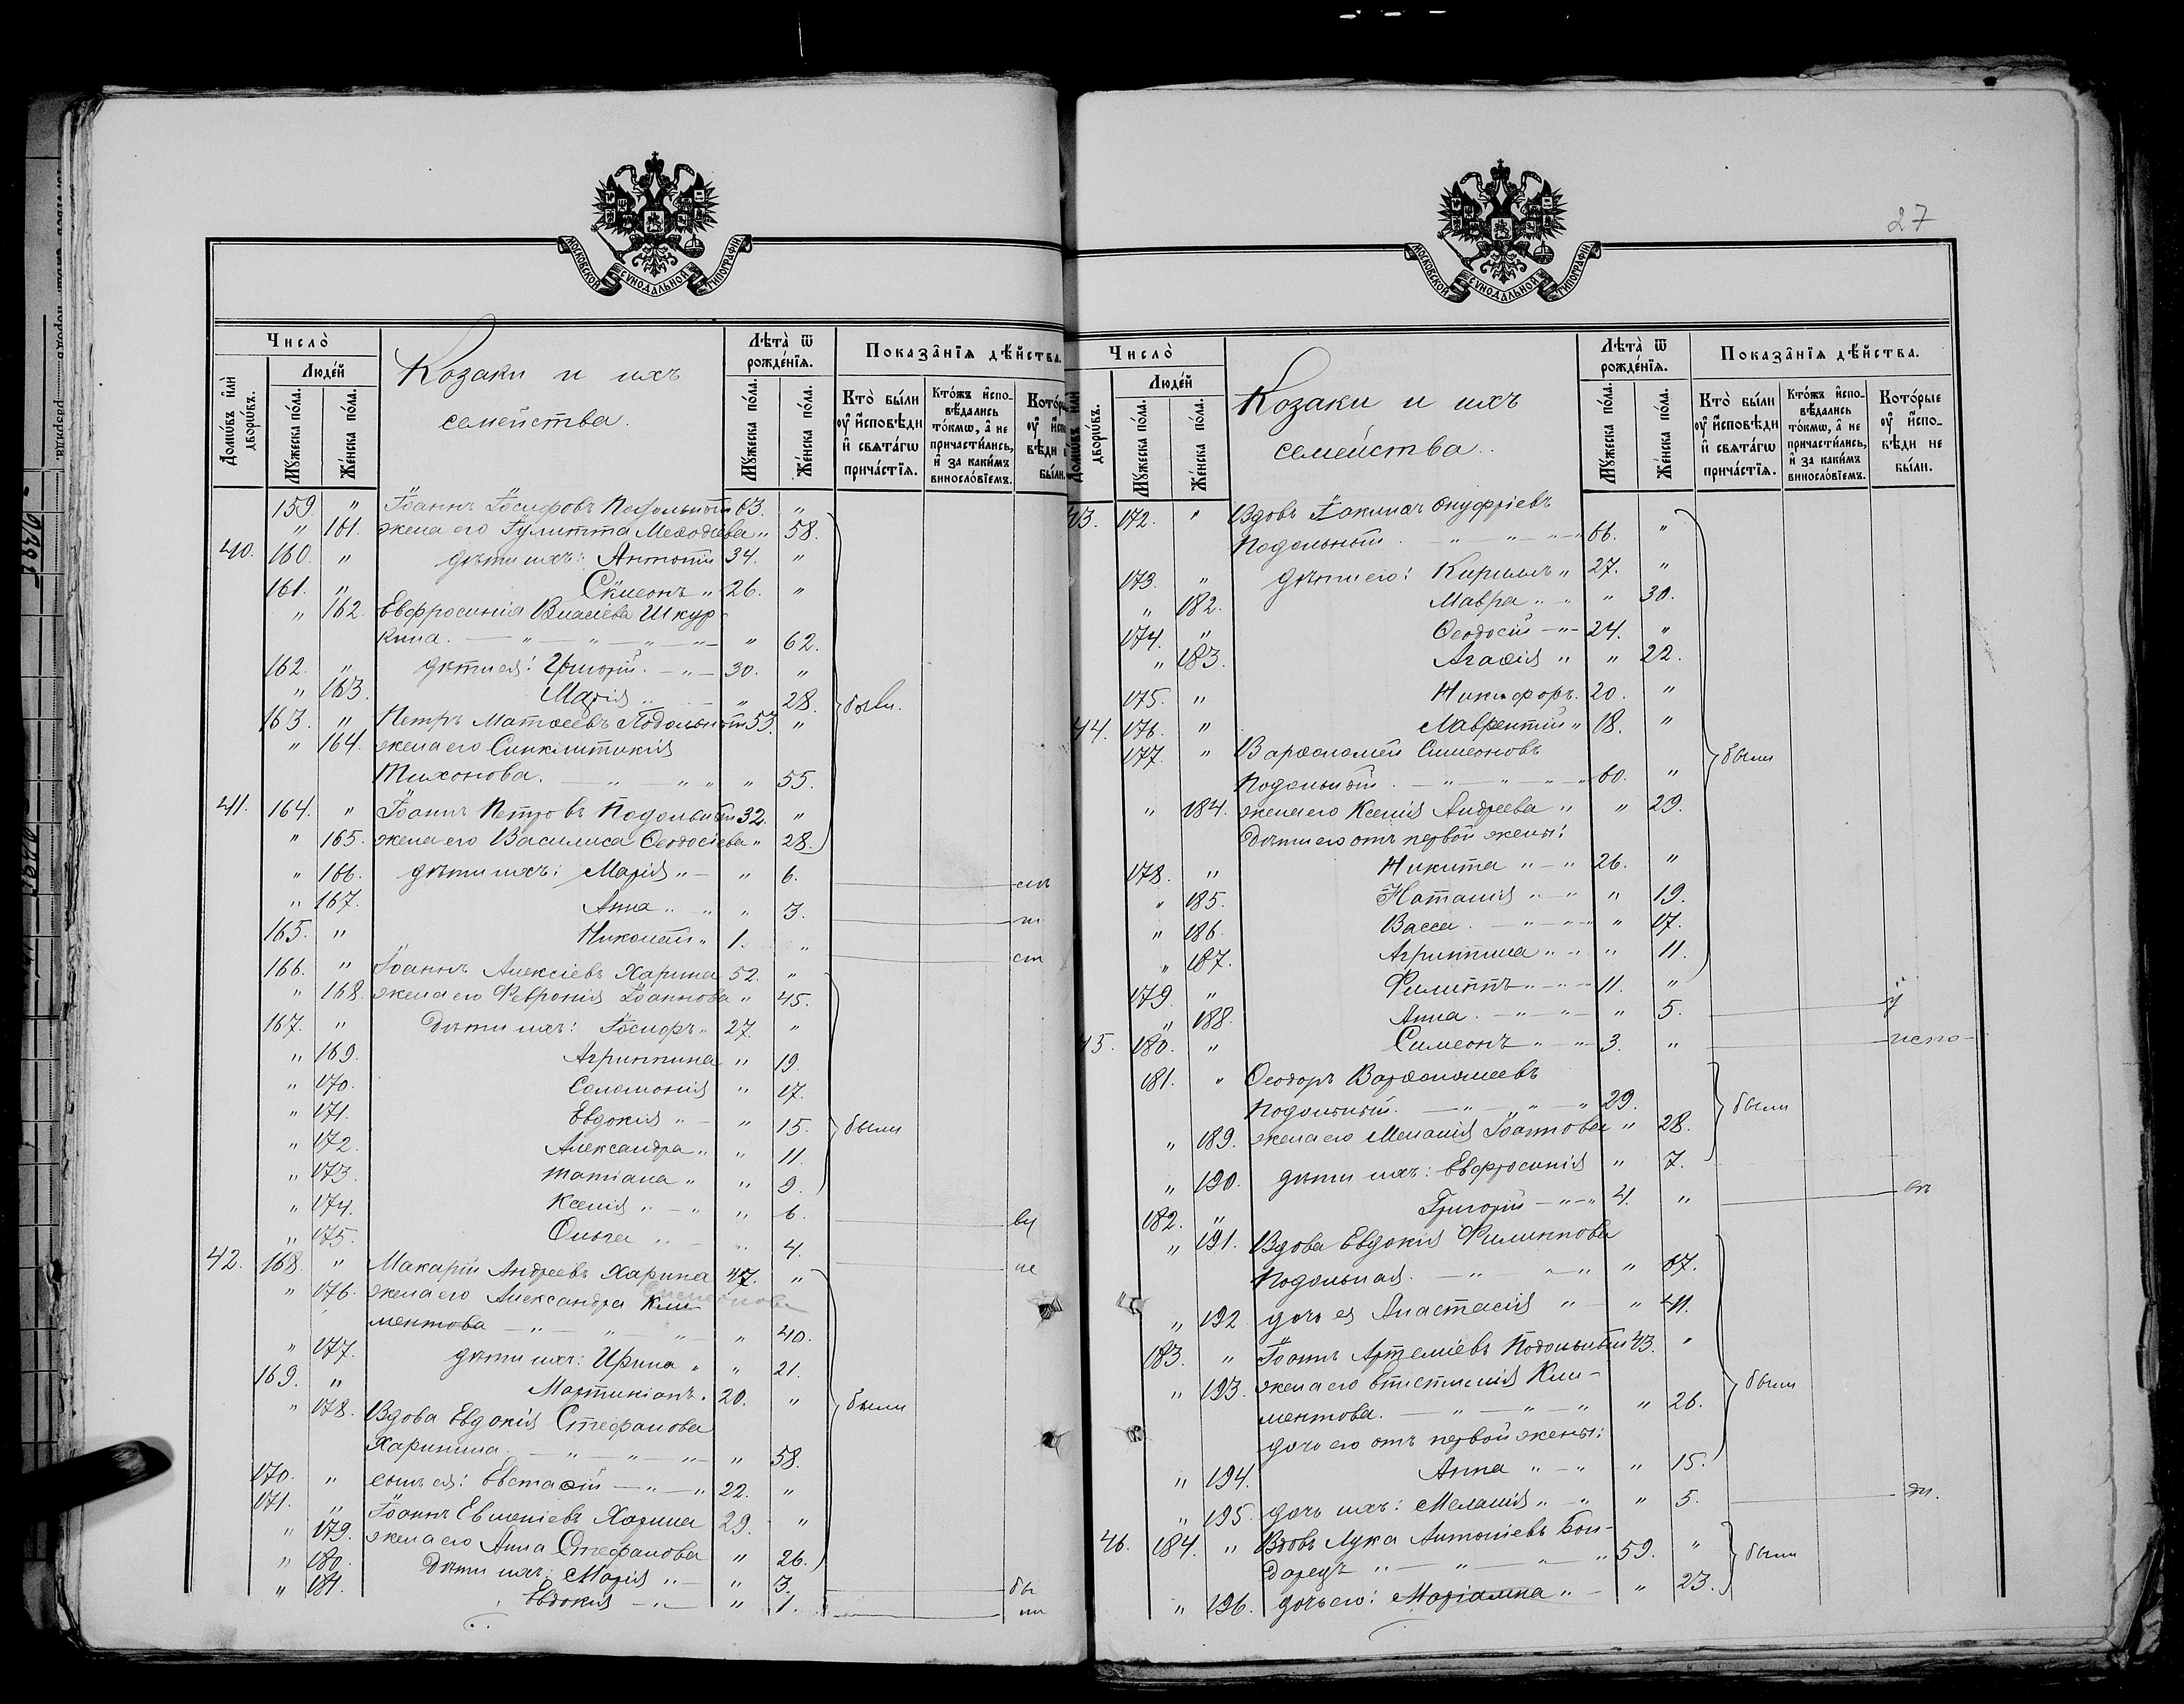 27
МОСКОВСКОЙ СѴНОДАЛЬНОЙ ТИПОГРАФІИ
Число̀
Людéй
Домѡ́въ и҆лѝ дворѡ́въ.
Мꙋ́жеска по́ла.
Же́нска по́ла.
Козаки и ихъ
семейства.
Лѣта̀ ѿ рожде́нїѧ.
Мꙋ́жеска по́ла.
Же́нска по́ла.
Показа̑нїѧ дѣ́йства.
Кто̀ бы́ли ᲂу҆ и҆сповѣ́ди и҆ свѧта́гѡ прича́стїѧ.
Кто́жъ и҆спо-вѣ́дались то́кмѡ, а҆ не причасти́лись, и҆ за каки́мъ виносло́вїемъ.
159 " Іоаннъ Іосифовъ Подольный 63. "
" 161. жена его Іулитта Меѳодіева " 58.
40. 160. " дѣти ихъ: Антоній 34. "
161. " Сѵмеонъ " 26. "
" 162. Евфросинія Власіева Шкур-
кина. — " — " — " — " 62.
162. " дѣти ея: Григорій. — " — 30. "
" 163. Марія " " 28. были.
163. " Петръ Матѳеевъ Подольный 53. "
" 164. жена его Синклитикія
Тихонова. — " " " " 55.
41. 164. " Іоаннъ Петровъ Подольный 32. "
" 165. жена его Василиса Ѳеодосіева " 28.
" 166. дѣти ихъ: Марія " — " 6.
" 167. Анна " " " 3.
165. " Николай " 1. "
166. " Іоаннъ Алексіевъ Харина 52. "
" 168. жена его Феѵронія Іоаннова " 45.
167. " Дѣти ихъ: Іосифъ " 27. "
" 169. Агриппина " 19.
" 170. Соломонія " 17.
" 171. Евдокія " — " 15. были
" 172. Александра " " 11.
" 173. Татіана " " 9.
" 174. Ксенія " — " " 6.
" 175. Ольга " — " 4.
42. 168. " Макарій Андреевъ Харина 47. " не
" 176. жена его Александра Кли-
ментова — " — " — " — " 40.
" 177. дѣти ихъ: Ирина " " 21.
169. " Мартиніанъ. 20. "
" 178. Вдова Евдокія Стефанова были
Харинина. — " — " — " — " 58.
170. " сынъ ея: Евстаѳій — " — " 22. "
171. " Іоаннъ Евменіевъ Харина 29. "
" 179. жена его Анна Стефанова " 26.
" 180. Дѣти ихъ: Марія " — " 3. бы
" 181. Евдокія — " — " 1. ли
Число̀
Людéй
Домѡ́въ и҆лѝ дворѡ́въ.
Мꙋ́жеска по́ла.
Же́нска по́ла.
Козаки и ихъ
семейства.
Лѣта̀ ѿ рожде́нїѧ.
Мꙋ́жеска по́ла.
Же́нска по́ла.
Показа̑нїѧ дѣ́йства.
Кто̀ бы́ли ᲂу҆ и҆сповѣ́ди и҆ свѧта́гѡ прича́стїѧ.
Кто́жъ и҆спо-вѣ́дались то́кмѡ, а҆ не причасти́лись, и҆ за каки́мъ виносло́вїемъ.
Кото́рые ᲂу҆ и҆спо-вѣ́ди не бы́ли.
43. 172. " Вдовъ Іоакимъ Онуфріевъ
Подольный. — " — " — " 66. "
173. " дѣти его: Кириллъ " 27. "
" 182. Мавра " " " 30.
174. " Ѳеодосій — " 24. "
" 183. Агаѳія " " 22.
175. " Никифоръ. 20. "
44. 176. " Лаврентій " 18. "
177. " Варѳоломей Симеоновъ были
Подольный. — " — " — " 60. "
" 184. жена его Ксенія Андреева " " 29.
Дѣти его отъ первой жены:
178. " Никита " — " 26. "
" 185. Наталія " — " " 19.
" 186. Васса. — " — " " 17.
" 187. Агриппина " " " 11.
179. " Филиппъ " — " 11. "
" 188. Анна. — " — " — " 5. у
45. 180. " Симеонъ " — " 3. " испо-
181. " Ѳеодоръ Варѳоломеевъ
Подольный. — " — " — " 29. были
" 189. жена его Меланія Іоаннова " 28.
" 190. дѣти ихъ: Евфросинія " 7.
182. " Григорій — " — " 4. " вѣ
" 191. Вдова Евдокія Филиппова
Подольная. — " — " — " " 67.
" 192 дочь ея Анастасія " — " 41.
183. " Іоаннъ Артеміевъ Подольный 43. "
" 193. жена его Епистимія Кли-
ментова. — " — " — " " 26. были
дочь его отъ первой жены:
" 194. Анна " — " " 15.
" 195. дочь ихъ: Меланія " — " " 5. ди.
46. 184. " Вдовъ Лука Антоніевъ Бон-
дарецъ " — " — " — " 59. " были
" 196. дочь его: Маріамна " — " 23.